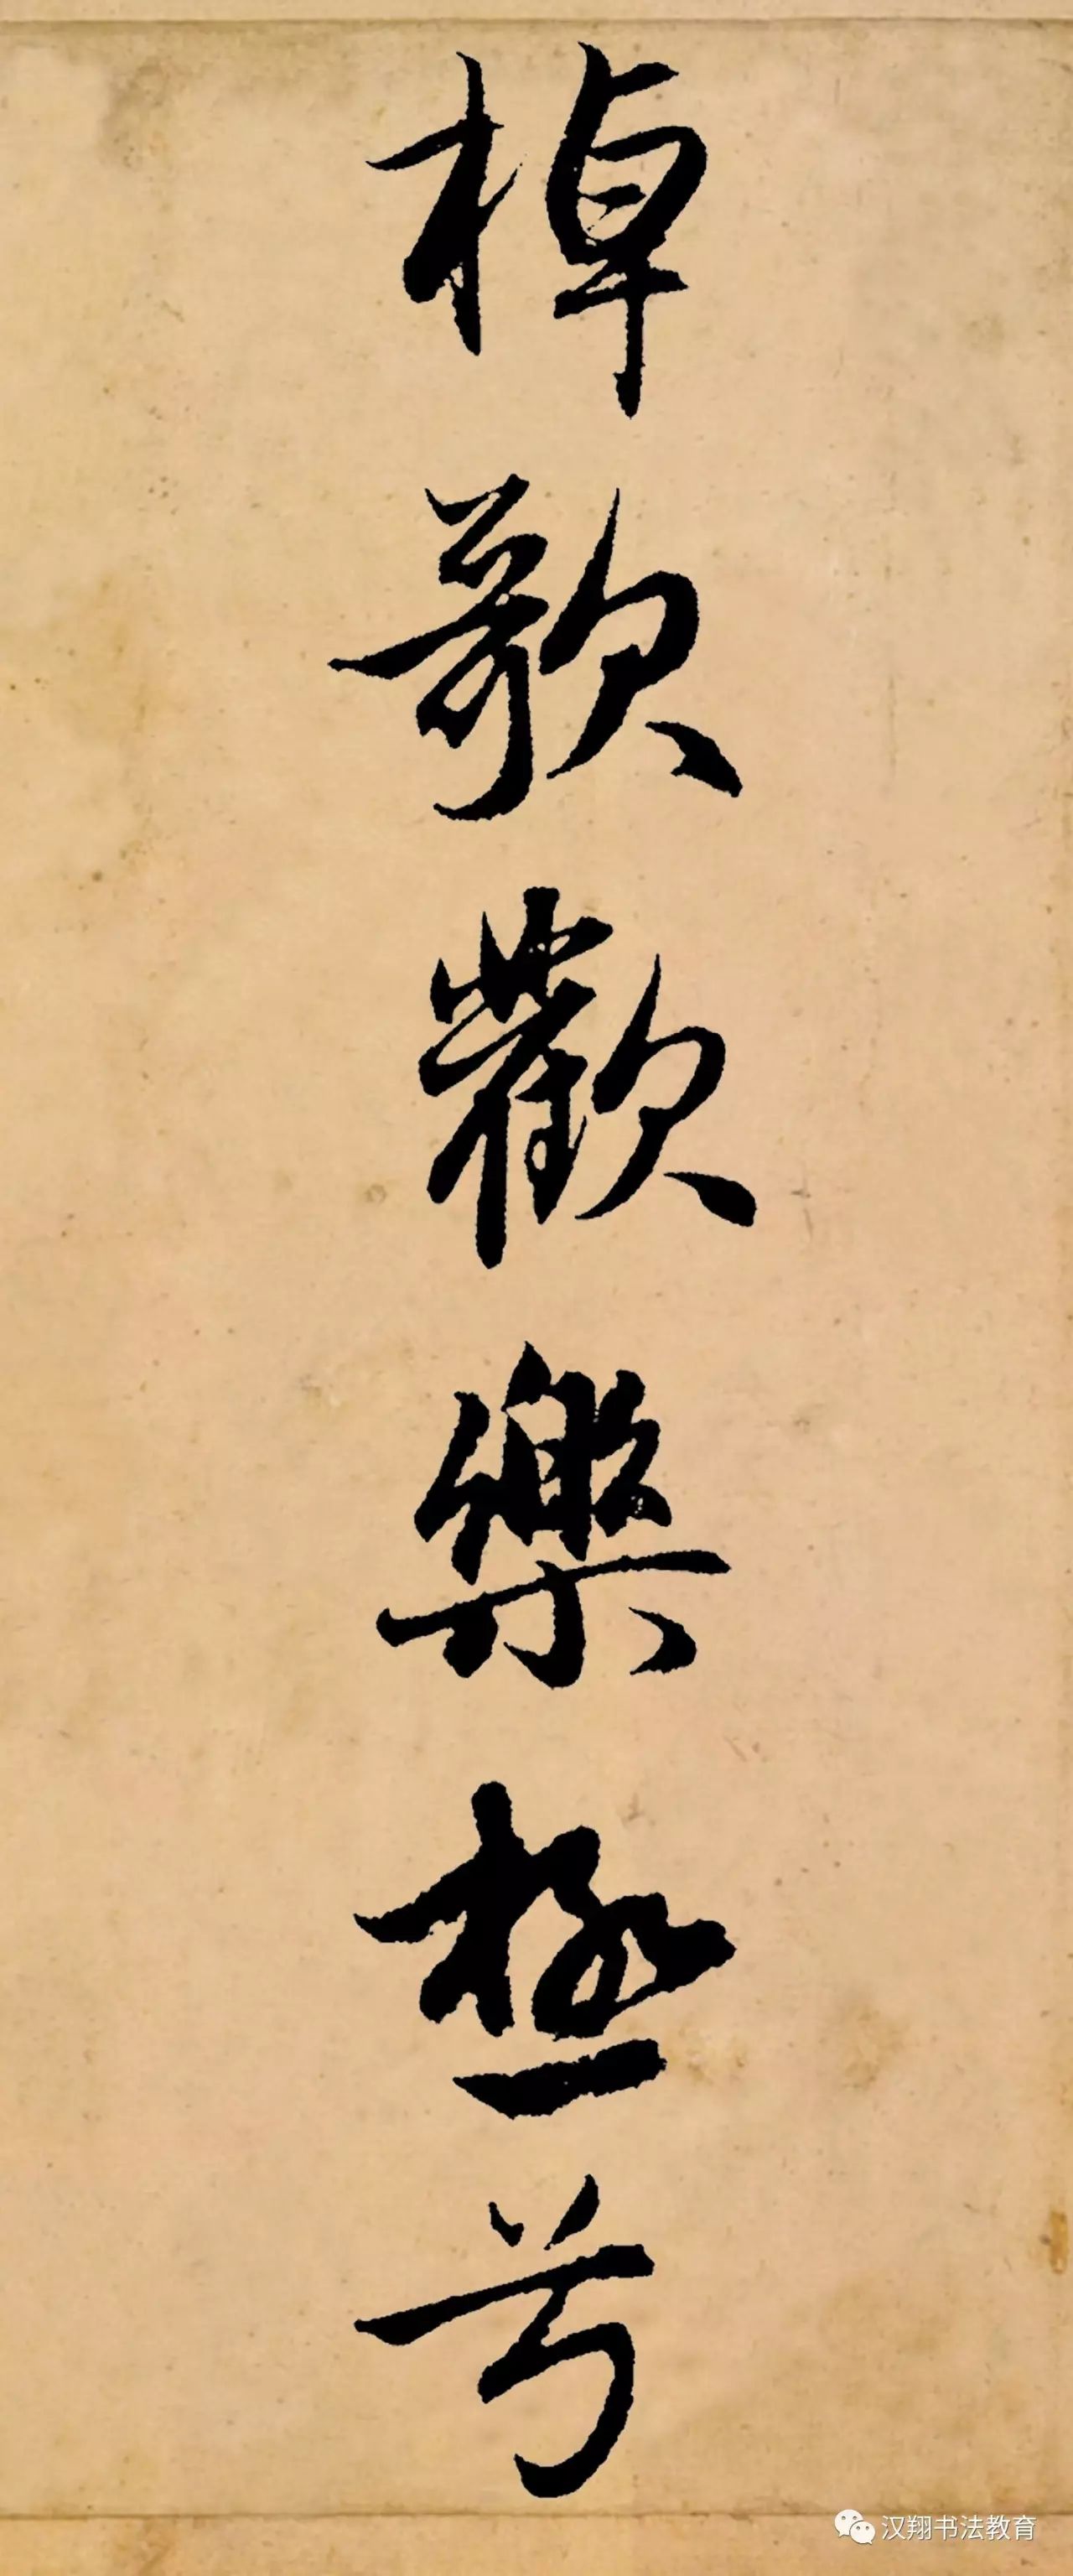 棹歌歡樂極兮
汉翔书法教育